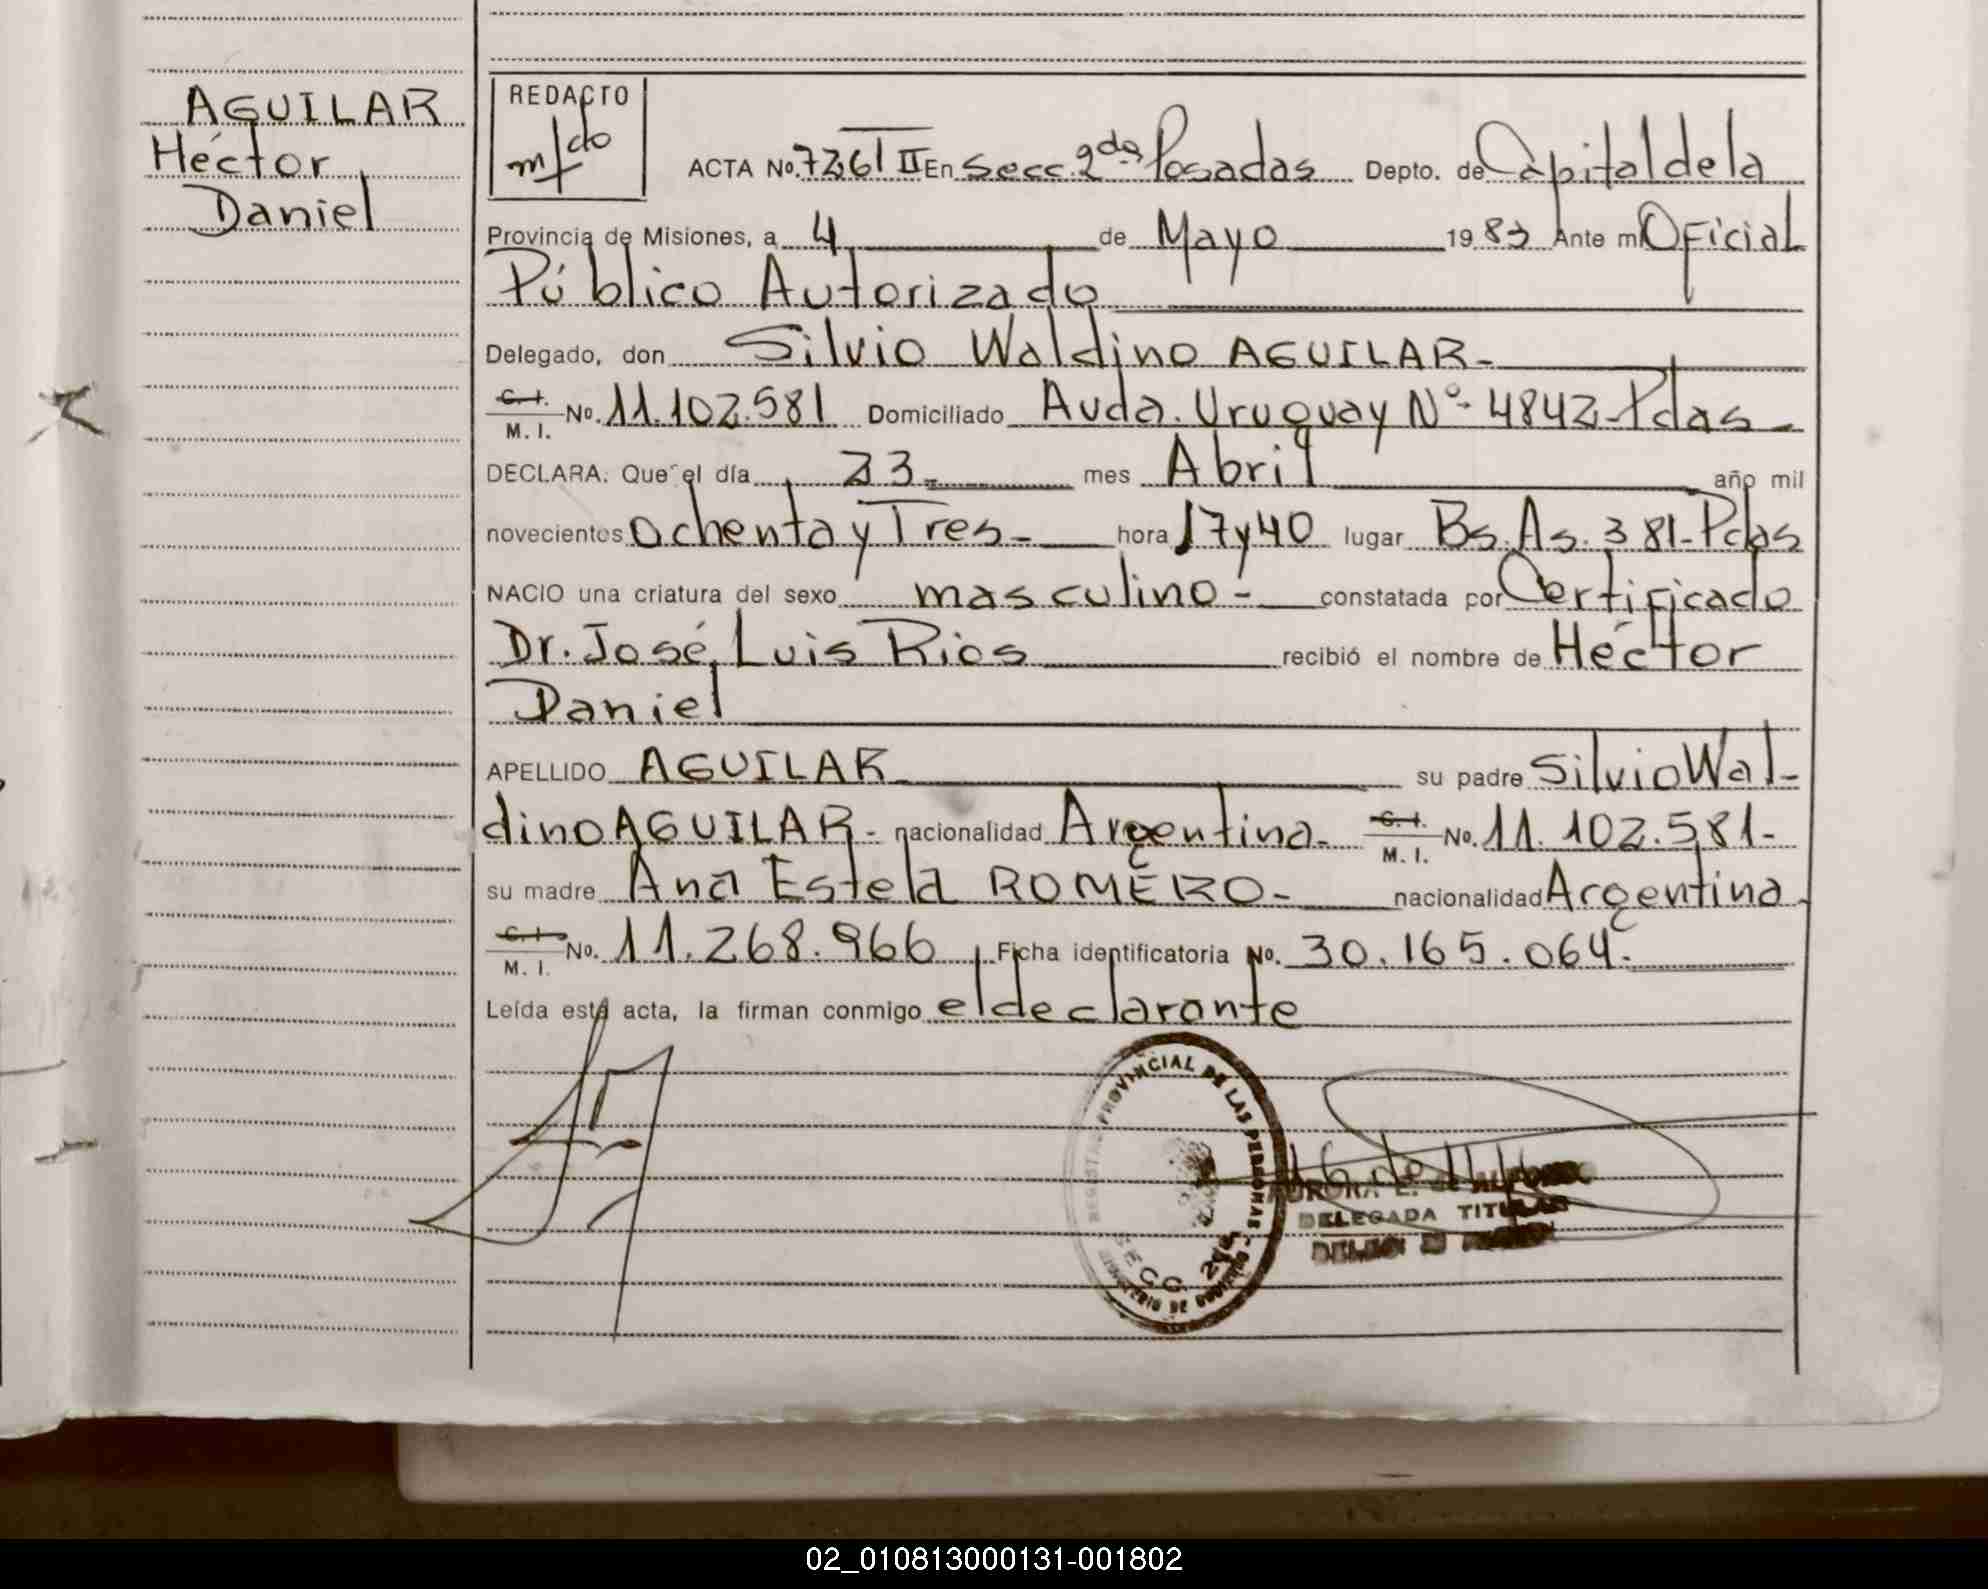 AGUILAR
Héctor
Daniel
REDACTO
ACTA No. 7261 II En Secc. 2da Posadas Depto. de Capital de la
Provincia de Misiones, a 4 de Mayo 1983 Ante mí Oficial
Público Autorizado
Delegado, don Silvio Waldino AGUILAR-
C. I. M. I. No. 11.102.581 Domiciliado Avda. Uruguay Nº 4842-Pdas-
DECLARA: Que el día 23 mes Abril año mil
novecientos ochenta y Tres- hora 17 y 40 lugar Bs. As. 381-Pdas
NACIO una criatura del sexo masculino- constatada por Certificado
Dr. José Luis Rios recibió el nombre de Héctor
Daniel
APELLIDO AGUILAR su padre Silvio Wal-
dino AGUILAR- nacionalidad Argentina- C. I. M. I. No. 11.102.581-
su madre Ana Estela ROMERO- nacionalidad Argentina
C. I. M. I. No. 11.268.966 Ficha identificatoria No. 30.165.064-
Leída está acta, la firman conmigo el declarante
REGISTRO PROVINCIAL DE LAS PERSONAS -
SECC. 2da
MINISTERIO DE GOBIERNO
AURORA E. de ALFONSO
DELEGADA TITULAR
02_010813000131-001802